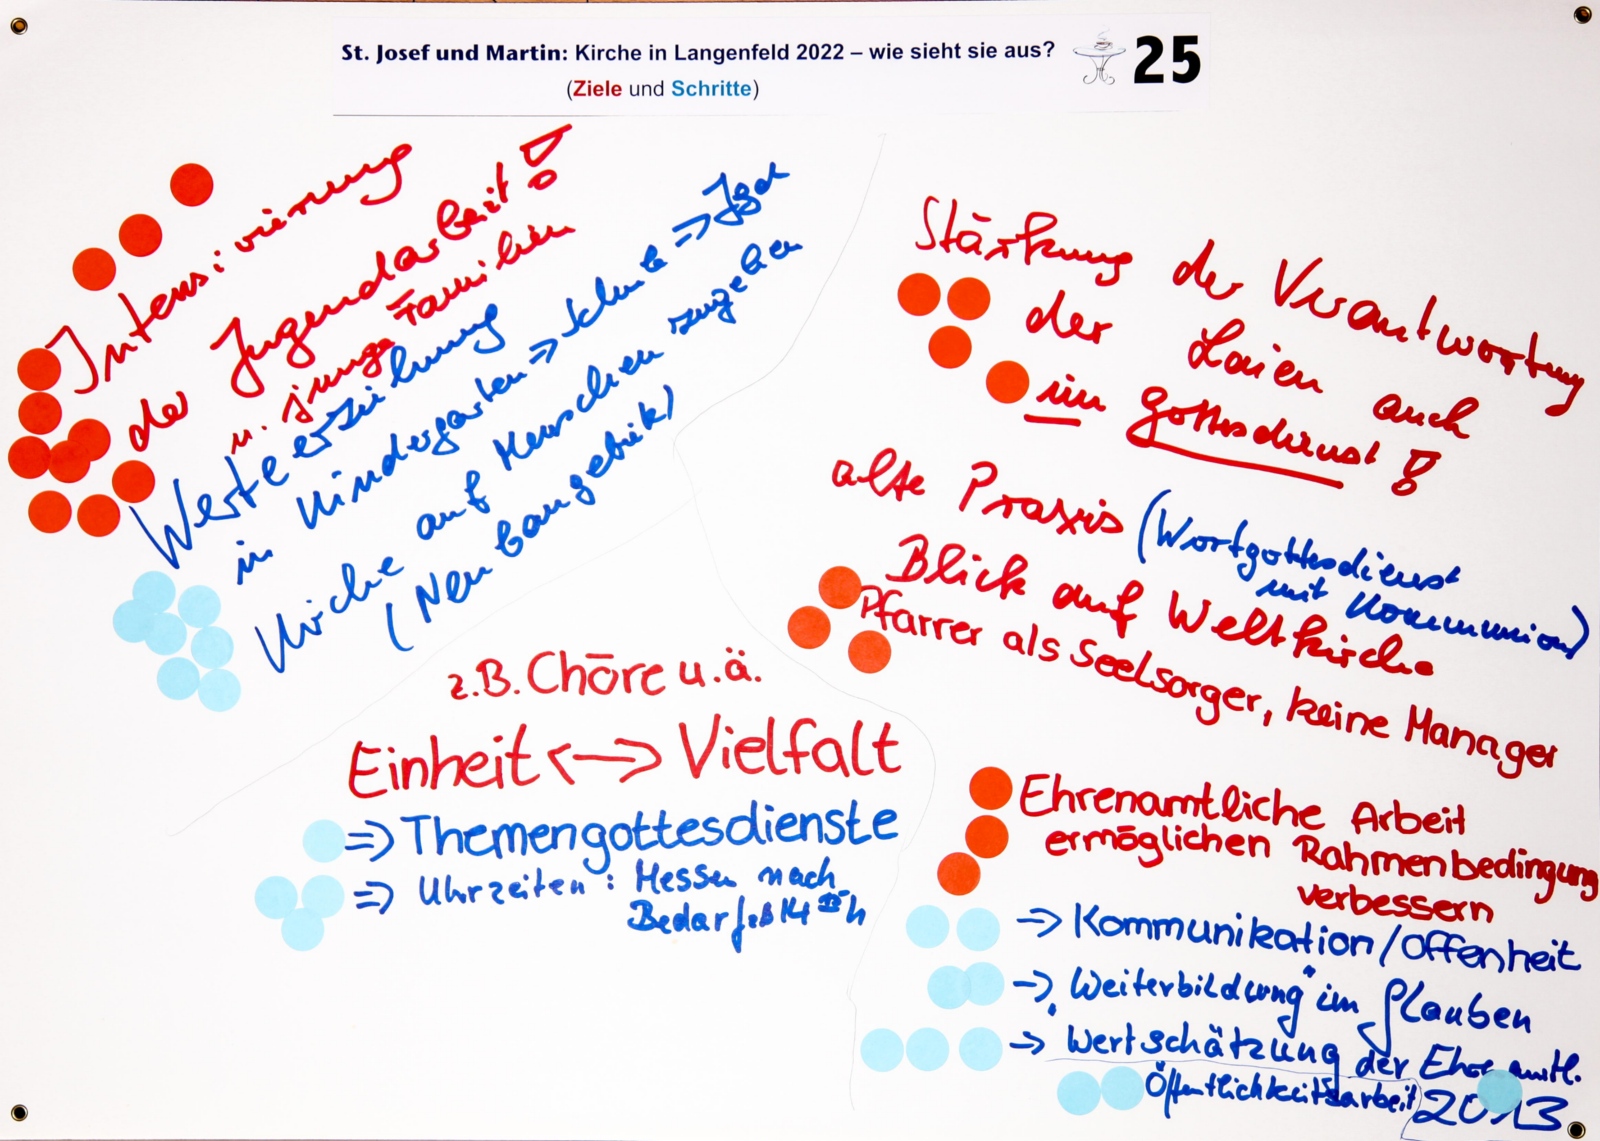 St. Josef und Martin: Kirche in Langenfeld 2022 – wie sieht sie aus?
(Ziele und Schritte)
25
Intensivierung
der Jugendarbeit!
u. junge Familien
Werteerziehung
in Kindergarten => Schule => Jgd
Kirche auf Menschen zugehen
(Neubaugebiet)
z.B. Chöre u.ä.
Einheit <-> Vielfalt
=> Themengottesdienste
=> Uhrzeiten: Messen nach
Bedarf z.B 14 h
Stärkung der Verantwortung
der Laien auch
im Gottesdienst!
alte Praxis (Wortgottesdienst
mit Kommunion)
Blick auf Weltkirche
Pfarrer als Seelsorger, keine Manager
Ehrenamtliche Arbeit
ermöglichen Rahmenbedingung
verbessern
-> Kommunikation/Offenheit
-> "Weiterbildung" im Glauben
-> Wertschätzung der Ehrenamtl.
Öffentlichkeitsarbeit
2013